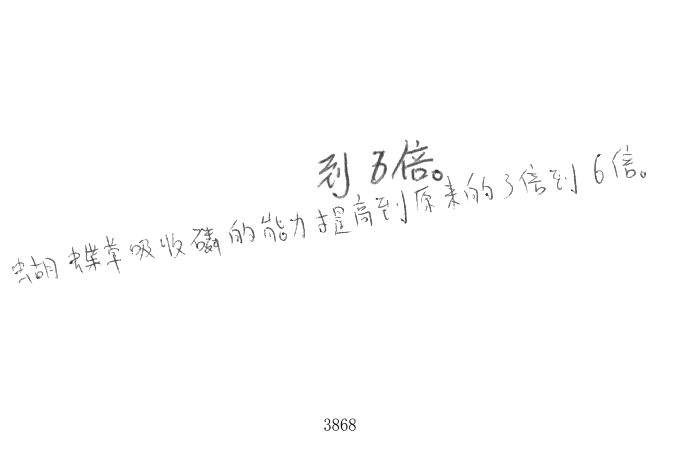 到6倍。
蝴蝶草吸收磷的能力提高到原来的3倍到6倍。
3868